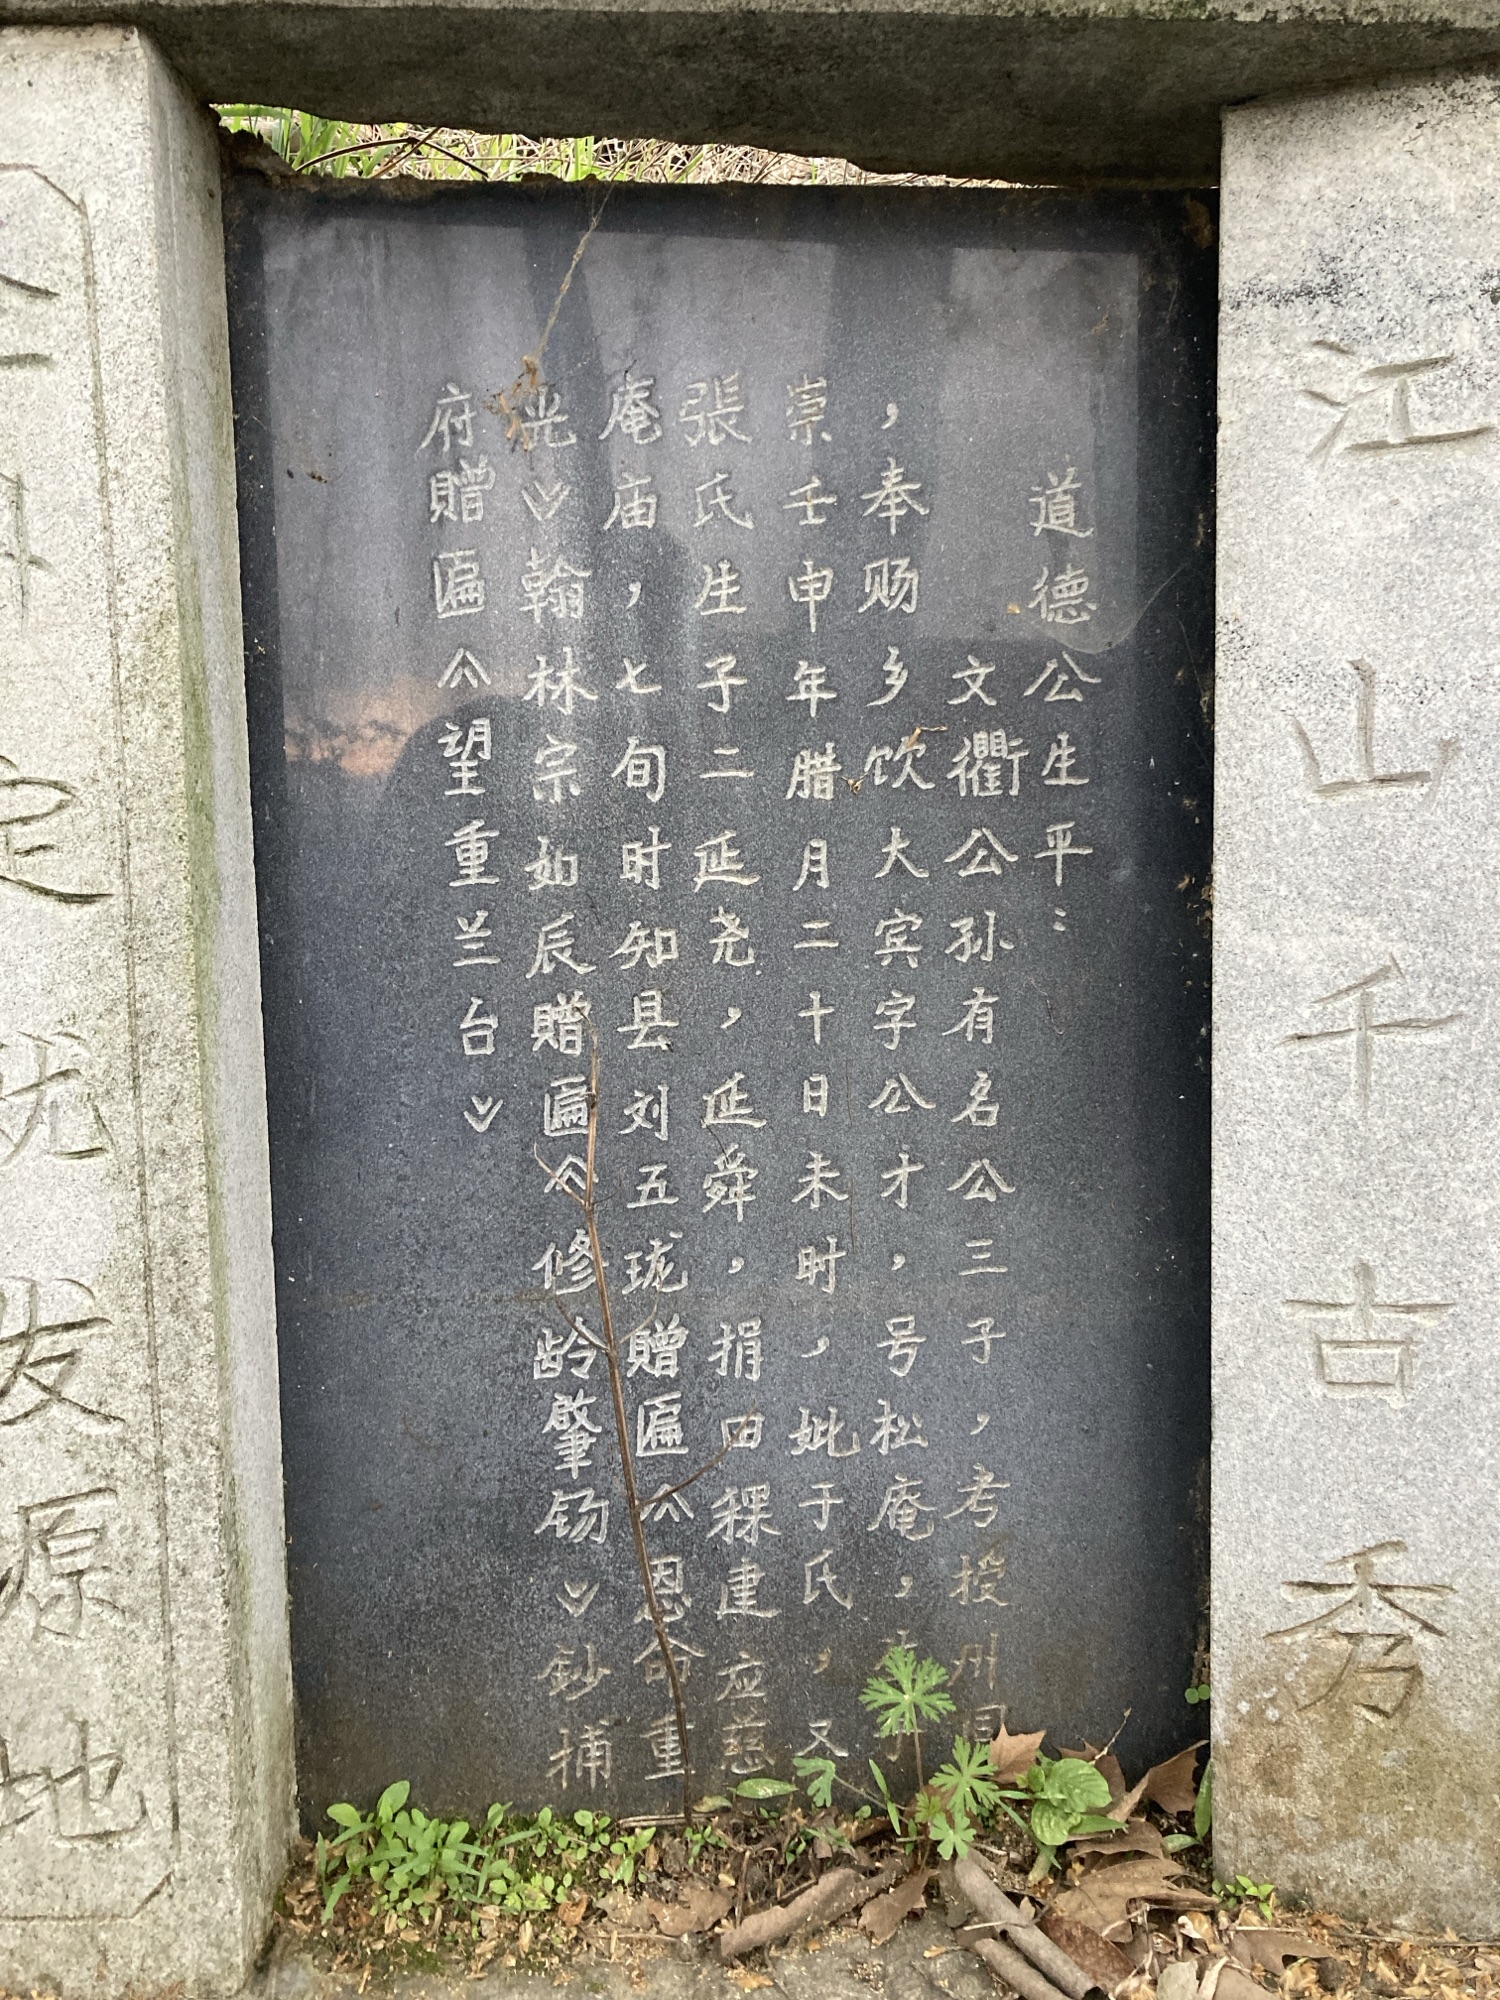 江山千古秀
道德公生平：
文衢公孙有名公三子，考授州同
，奉赐乡饮大宾字公才，号松庵，
崇壬申年腊月二十日未时，妣于氏，又
張氏生子二延尧，延舜，捐田稞建应慈
庵庙，七旬时知县刘五珑赠匾《恩命重
光》翰林宗如辰赠匾《修龄肇钖》鈔捕
府赠匾《望重兰台》
定 发原地